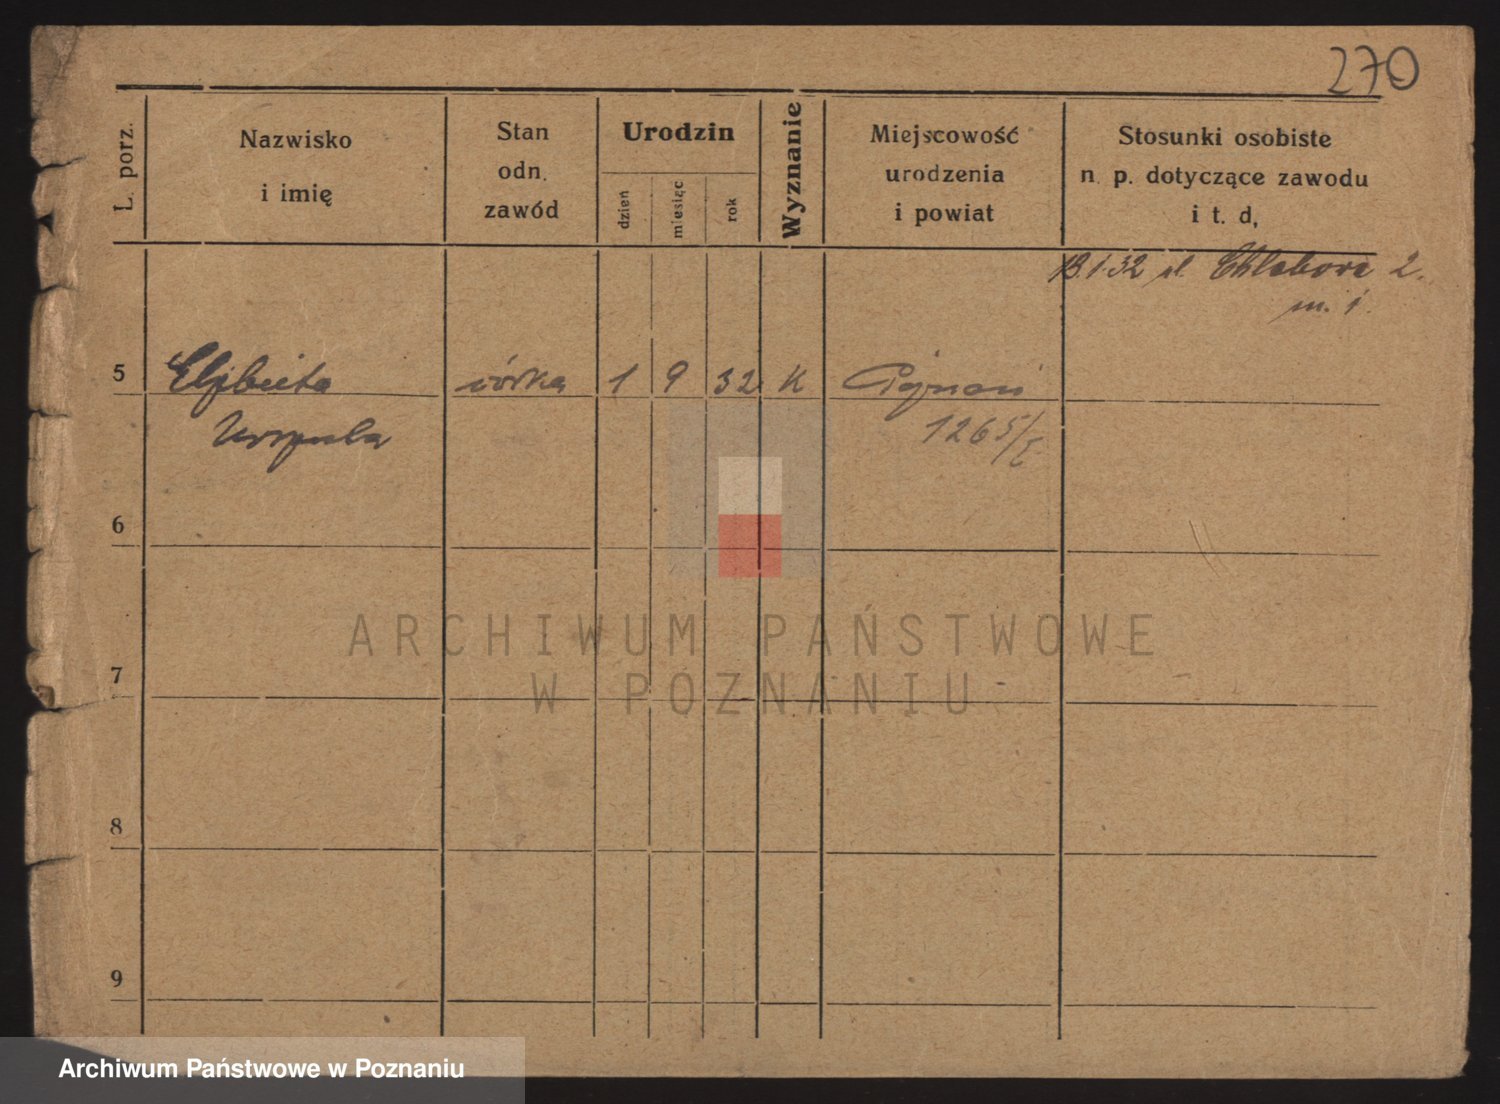 270
L. porz.
Nazwisko
i imię
Stan
odn.
zawód
Urodzin
dzień
miesiąc
rok
Wyznanie
Miejscowość
urodzenia
i powiat
Stosunki osobiste
n. p. dotyczące zawodu
i t. d,
13.1.32 ul. 2.
m. 1.
5 Elżbieta córka 1 9 32 K Poznań
Urszula 1265/
6
7
8
9
ARCHIWUM PAŃSTWOWE
W POZNANIU
Archiwum Państwowe w Poznaniu